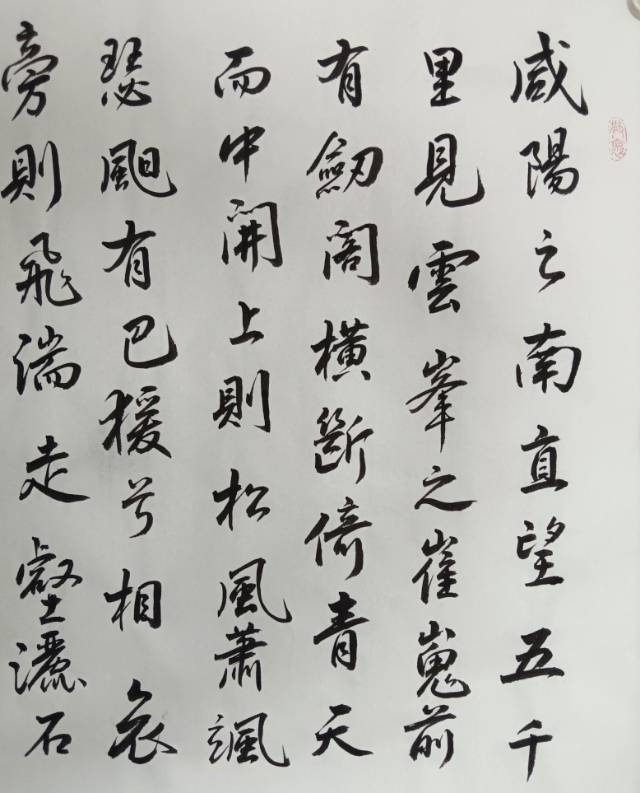 咸陽之南直望五千
里見雲峯之崔嵬前
有劒閣橫斷倚青天
而中開上則松風蕭颯
瑟䫻有巴猨兮相哀
旁則飛湍走壑灑石